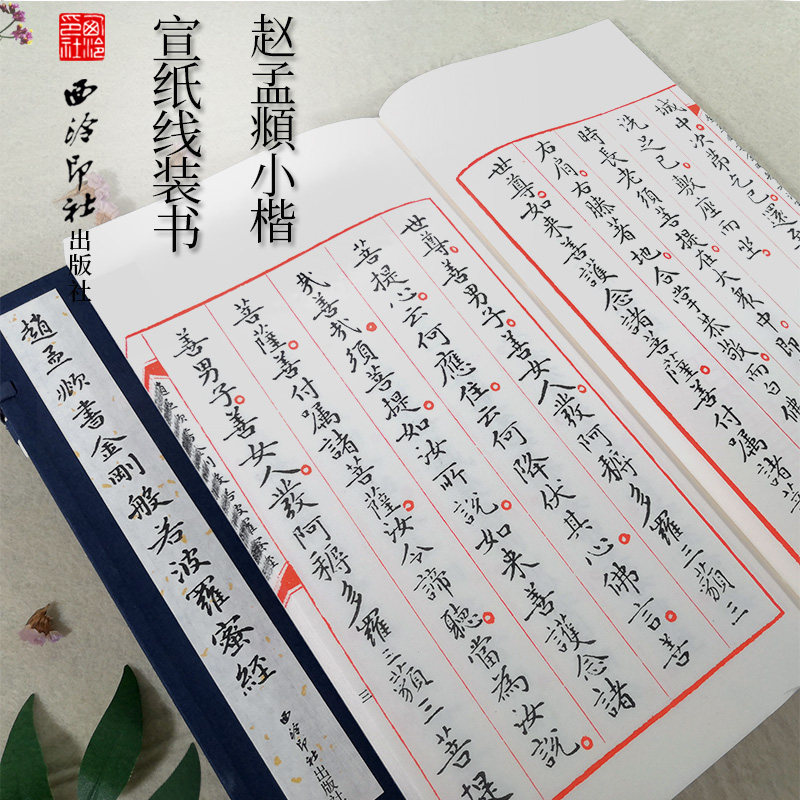 赵孟頫小楷
宣纸线装书
西泠印社
西泠印社出版社
城中次第乞已還至
洗足已敷座而坐
時長老須菩提在大衆中即
右肩右膝著地合掌恭敬而白佛
世尊如来善護念諸菩薩善付囑諸菩
世尊善男子善女人發阿耨多羅三藐三
菩提心云何應住云何降伏其心佛言善
哉善哉須菩提如汝所說如来善護念諸
菩薩善付囑諸菩薩汝今諦聽當為汝說
善男子善女人發阿耨多羅三藐三菩提
三
趙孟頫書金剛般若波羅蜜經
西泠印社出版社